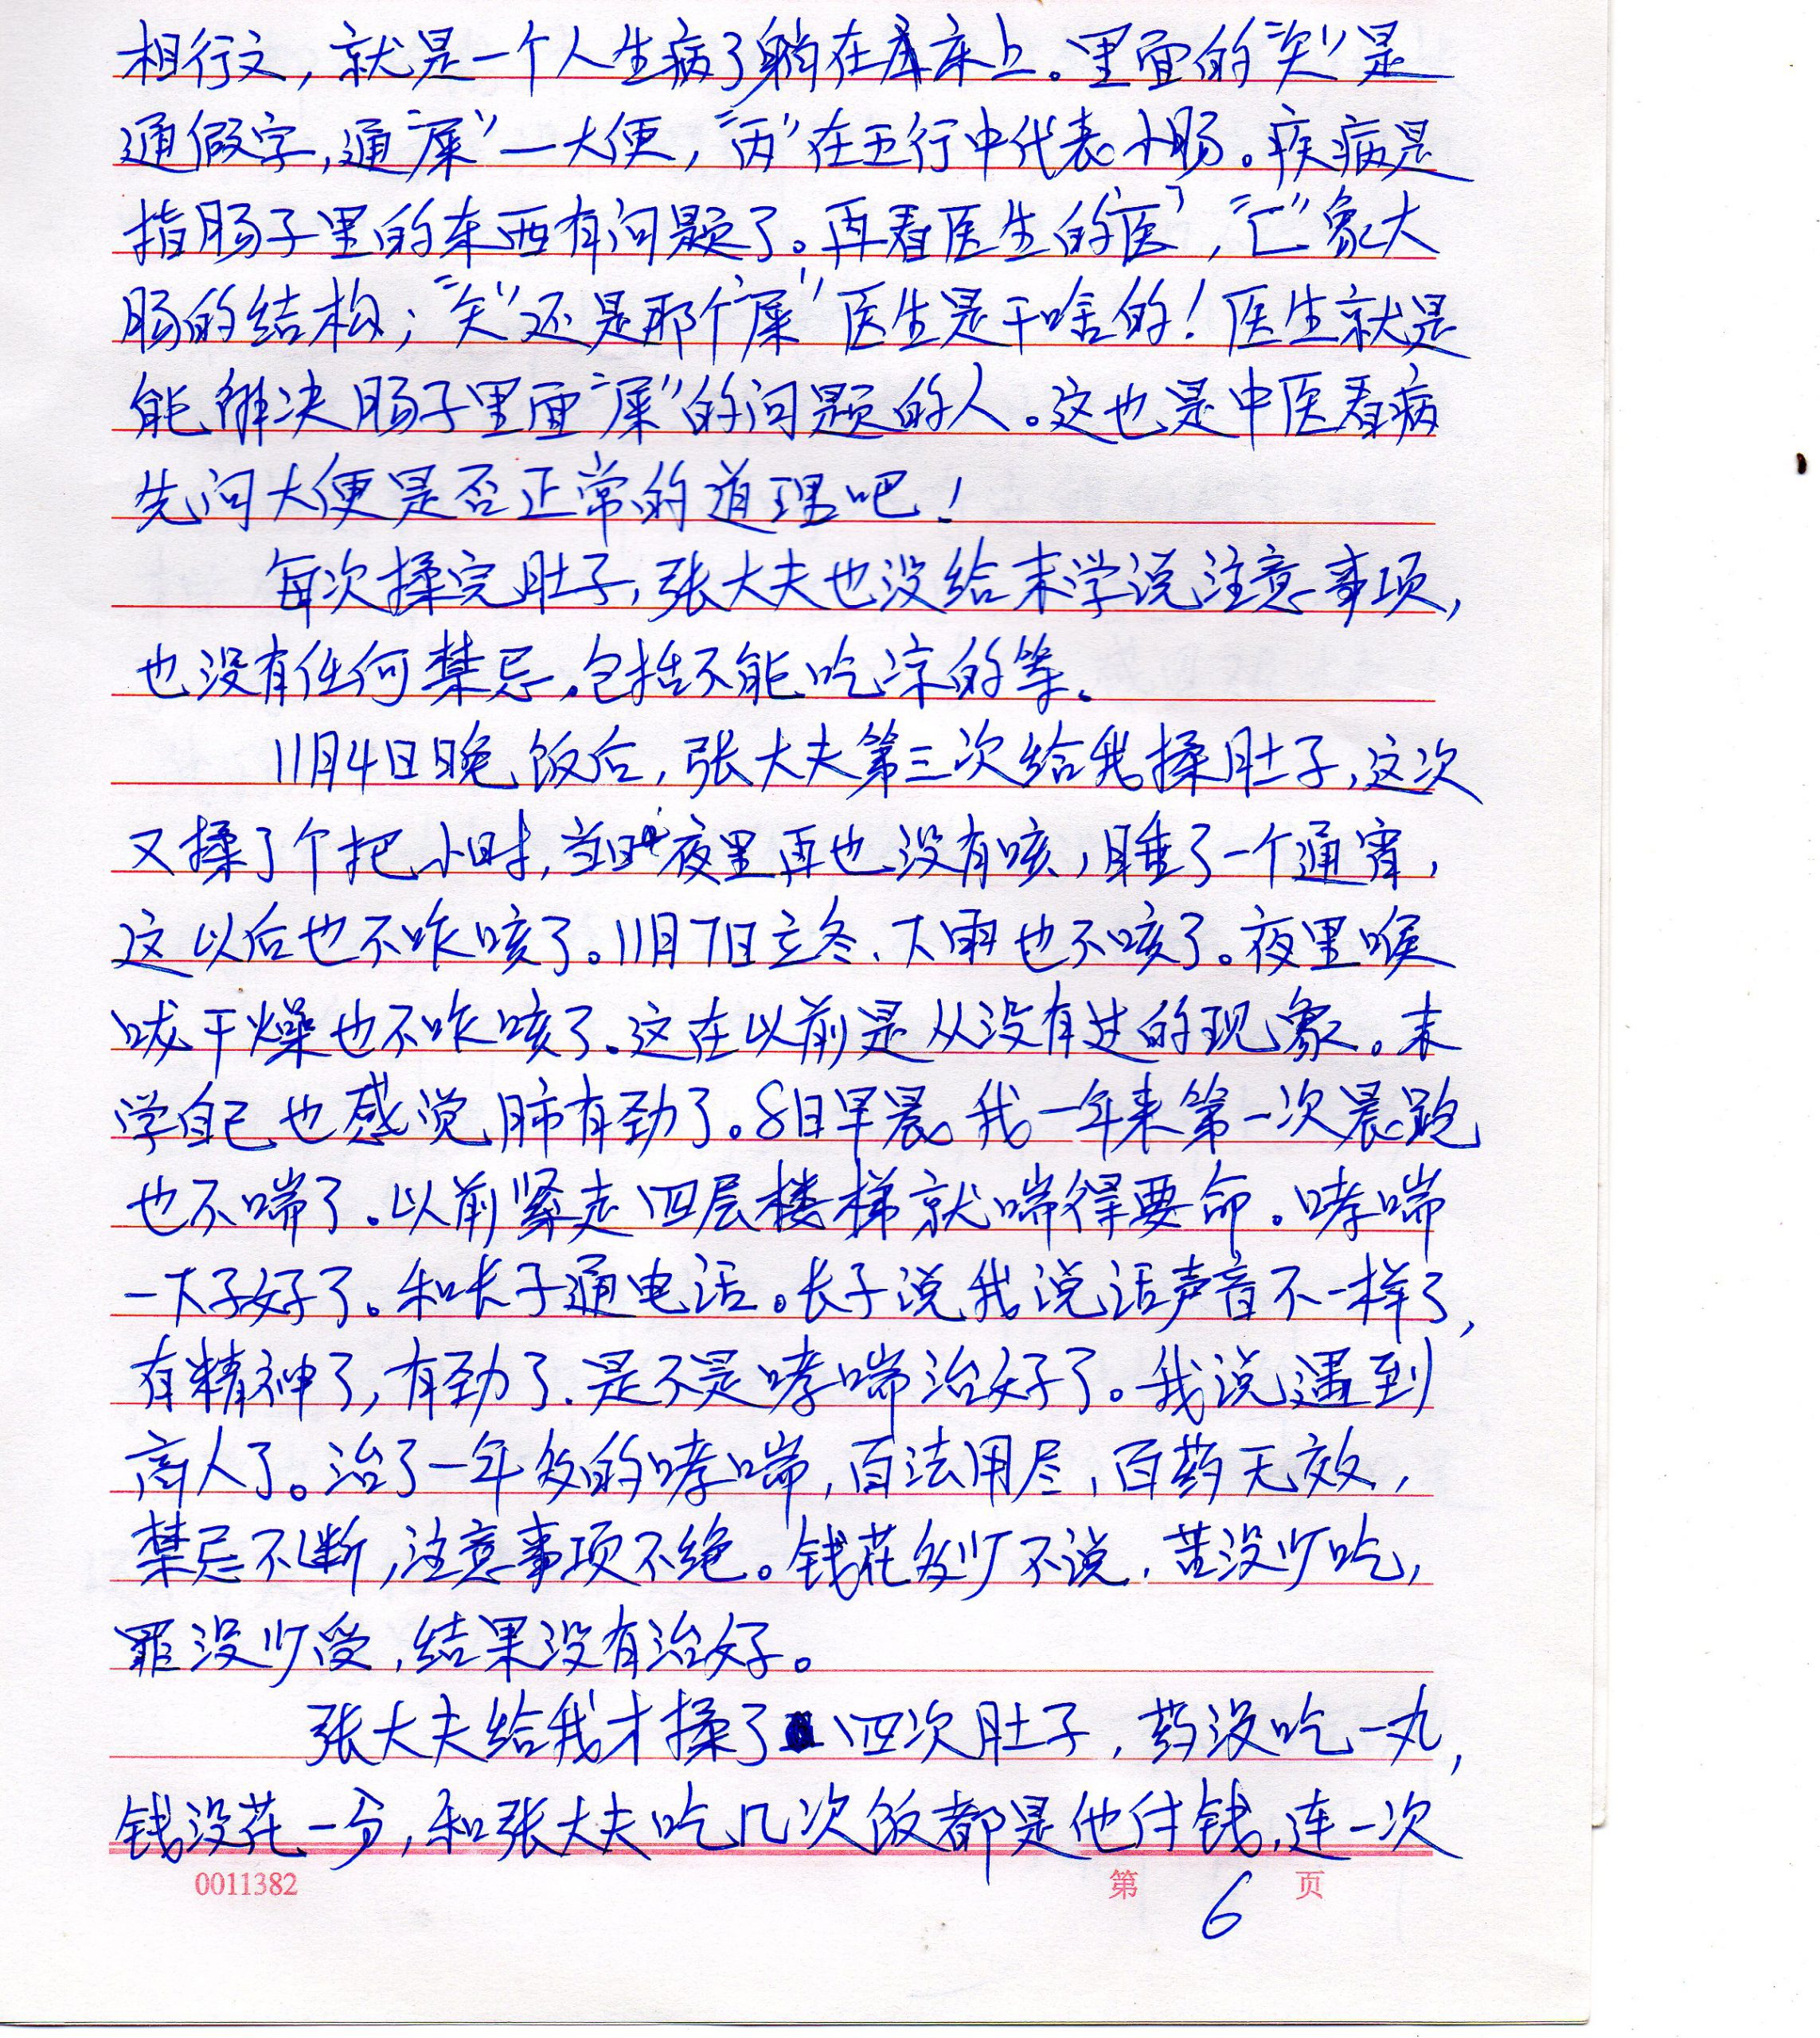 相行文，就是一个人生病了躺在床上。里面的“矢”是
通假字，通“屎”—大便，“丙”在五行中代表小肠。疾病是
指肠子里的东西有问题了。再看医生的“医”，“匚”象大
肠的结构；“矢”还是那个“屎”医生是干啥的！医生就是
能解决肠子里面“屎”的问题的人。这也是中医看病
先问大便是否正常的道理吧！
每次揉完肚子，张大夫也没给末学说注意事项，
也没有任何禁忌。包括不能吃凉的等。
11月4日晚饭后，张大夫第三次给我揉肚子，这次
又揉了个把小时，当时夜里再也没有咳，睡了一个通宵，
这以后也不咋咳了。11月7日立冬、下雨也不咳了。夜里喉
咙干燥也不咋咳了。这在以前是从没有过的现象。末
学自己也感觉肺有劲了。8日早晨我一年来第一次晨跑
也不喘了。以前紧走四层楼梯就喘得要命。哮喘
一下子好了。和长子通电话。长子说我说话声音不一样了，
有精神了，有劲了、是不是哮喘治好了。我说遇到
高人了。治了一年多的哮喘，百法用尽，百药无效，
禁忌不断，注意事项不绝。钱花多少不说，苦没少吃，
罪没少受，结果没有治好。
张大夫给我才揉了四次肚子，药没吃一丸，
钱没花一分，和张大夫吃几次饭都是他付钱，连一次
0011382 第 6 页